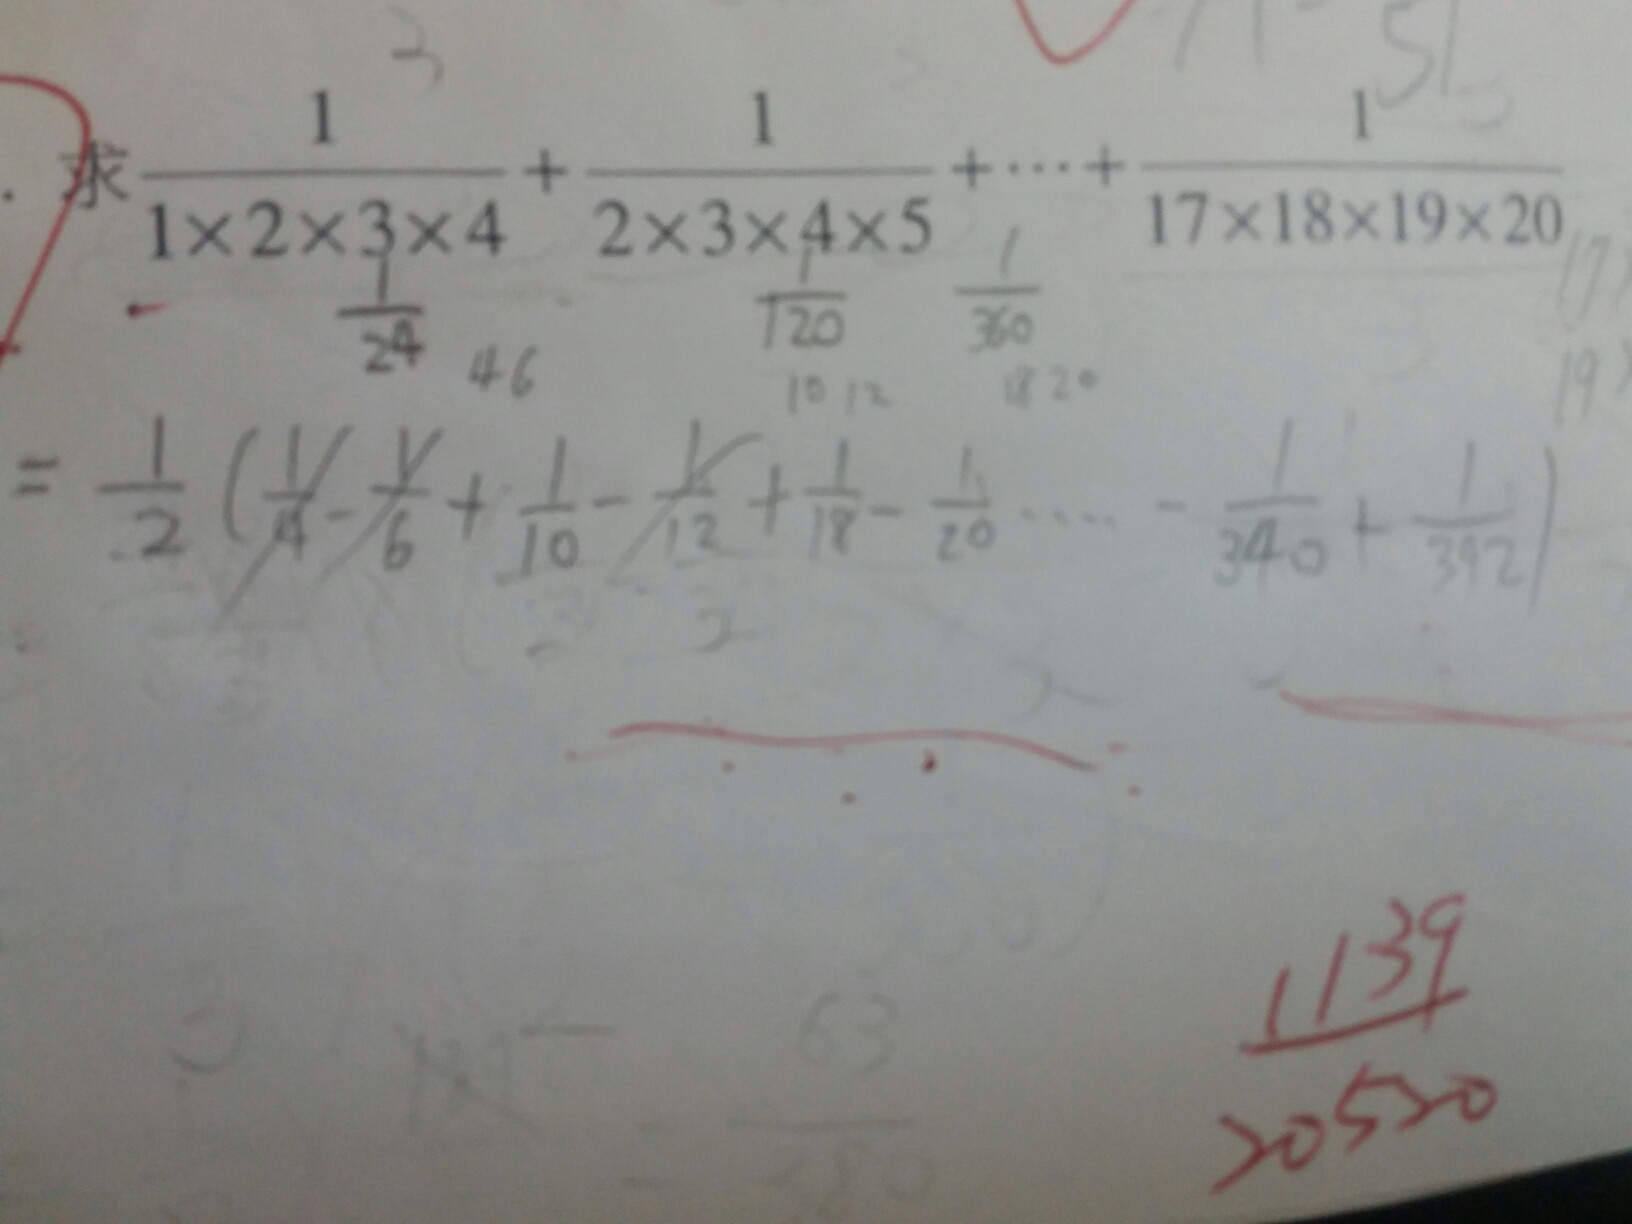 求 1/(1×2×3×4) + 1/(2×3×4×5) + ⋯ + 1/(17×18×19×20)
1/24 1/120 1/360
4 6 10 12 18 20
= 1/2 ( 1/4 - 1/6 + 1/10 - 1/12 + 1/18 - 1/20 ⋯ - 1/340 + 1/392 )
63
1139/20520